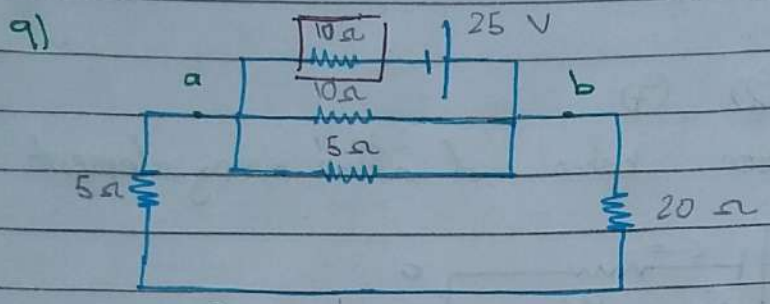 9)
10Ω
25 V
a
10Ω
b
5Ω
5Ω
20 Ω